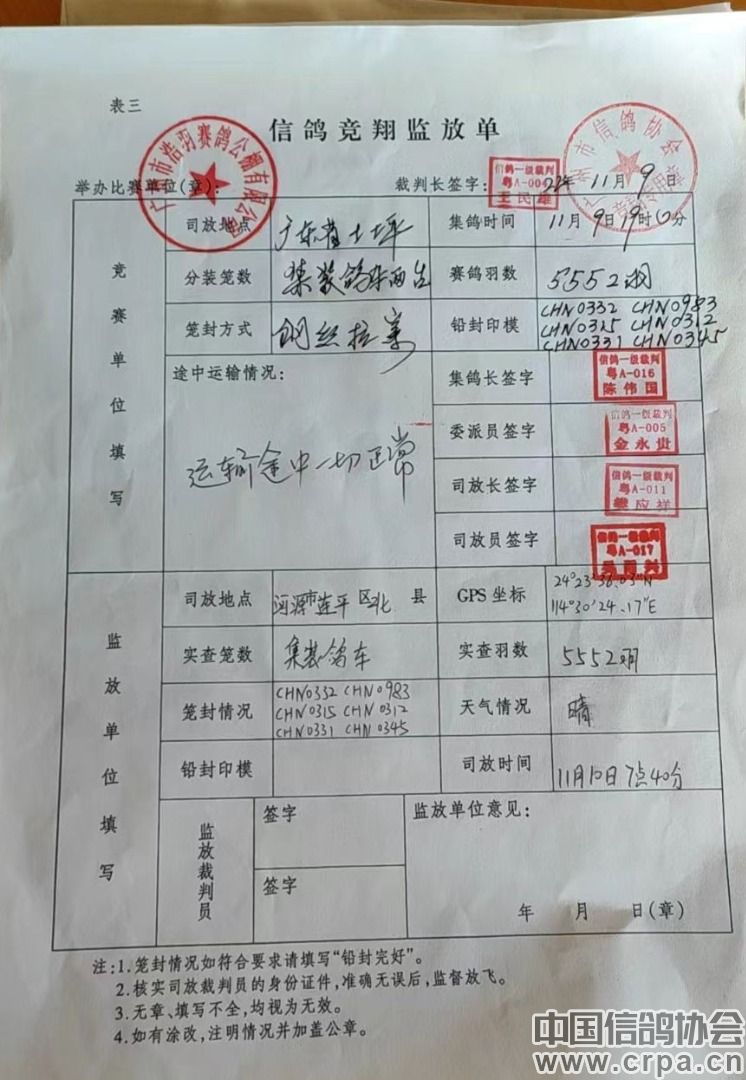 表三
信鸽竞翔监放单
广州市浩羽赛鸽公棚有限公司
广州市信鸽协会
举办比赛单位(章): 裁判长签字: 信鸽一级裁判 粤A-004 王民雄 22年11月9日
竞赛单位填写
司放地点 广东省上坪 集鸽时间 11月9日19时0分
分装笼数 集装鸽车两台 赛鸽羽数 5552羽
笼封方式 钢丝拉紧 铅封印模 CHN0332 CHN0983
CHN0315 CHN0312
CHN0331 CHN0345
途中运输情况: 集鸽长签字 信鸽一级裁判 粤A-016 陈伟国
运输途中一切正常 委派员签字 信鸽一级裁判 粤A-005 金永贵
司放长签字 信鸽一级裁判 粤A-011 应祥
司放员签字 信鸽一级裁判 粤A-017
监放单位填写
司放地点 河源市连平区北 县 GPS坐标 24°23'36.03"N
114°30'24.17"E
实查笼数 集装鸽车 实查羽数 5552羽
笼封情况 CHN0332 CHN0983
CHN0315 CHN0312
CHN0331 CHN0345
天气情况 晴
铅封印模 司放时间 11月10日7点40分
监放裁判员 签字 监放单位意见:
签字
年 月 日(章)
注:1.笼封情况如符合要求请填写“铅封完好”。
2.核实司放裁判员的身份证件,准确无误后,监督放飞。
3.无章、填写不全,均视为无效。
4.如有涂改,注明情况并加盖公章。
中国信鸽协会
www.crpa.cn